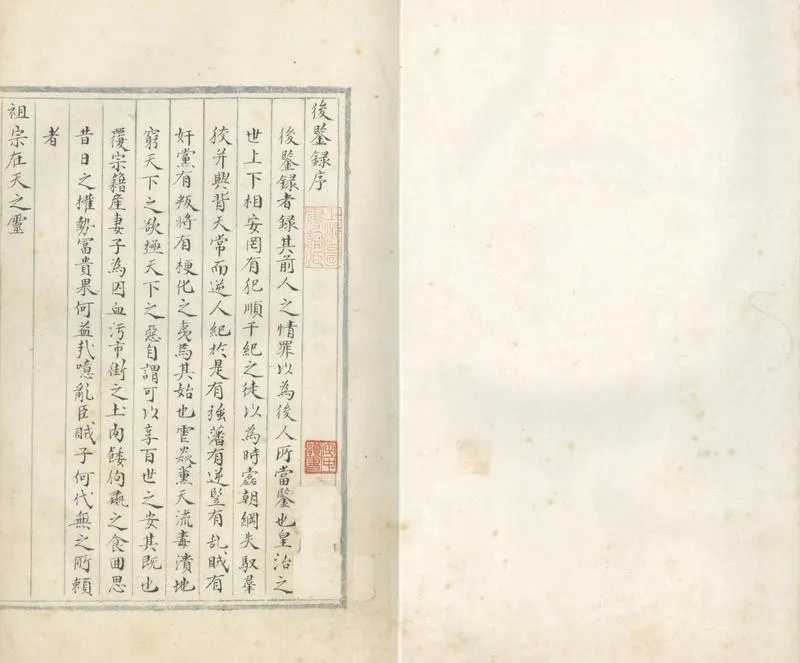 後鑒録序
後鑒録者録其前人之情罪以為後人所當鑒也皇治之
世上下相安罔有犯順干紀之徒以為時蠧朝綱失馭羣
狡并興背天常而逆人紀於是有強藩有逆豎有乱賊有
奸黨有叛將有梗化之夷焉其始也雲焱薰天流毒潰地
窮天下之欲極天下之惡自謂可以享百世之安其既也
覆宗籍產妻子為囚血污市街之土肉餧狗彘之食回思
昔日之權勢富貴果何益㢤噫亂臣賊子何代無之所頼
者
祖宗在天之靈